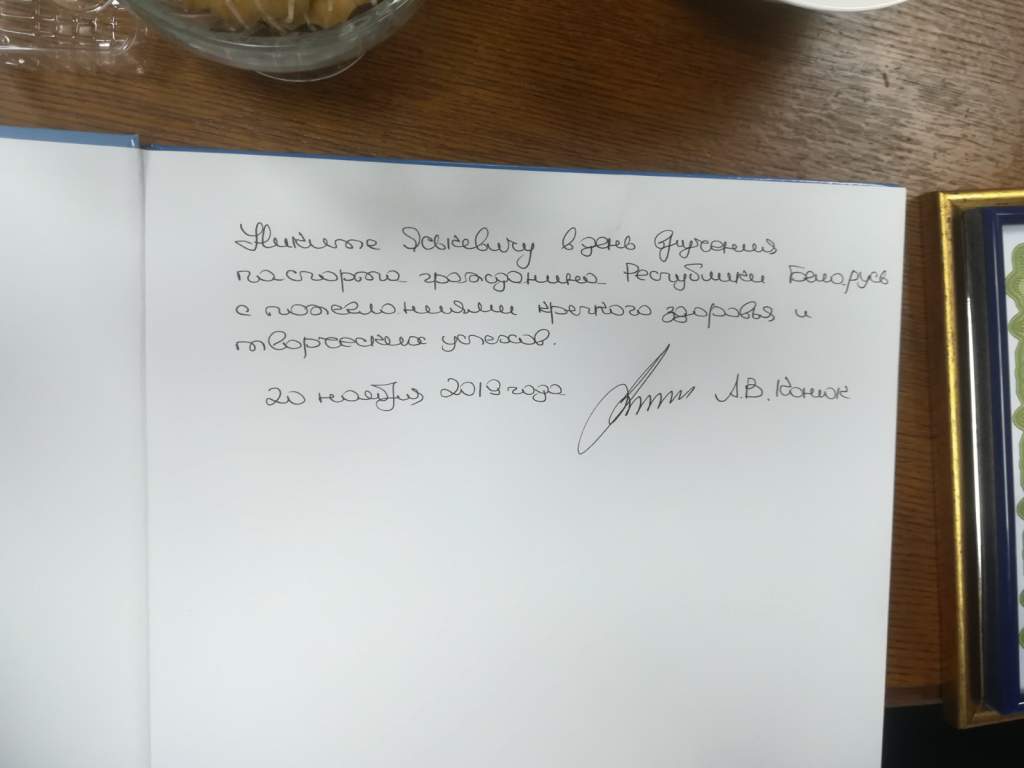 Никите Яськевичу в день вручения
паспорта гражданина Республики Беларусь
с пожеланиями крепкого здоровья и
творческих успехов.
20 ноября 2019 года А.В. Конюк